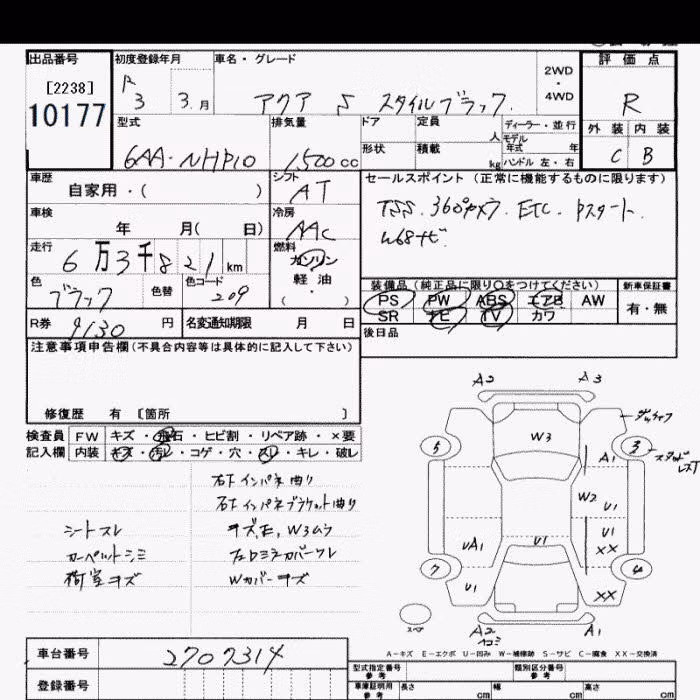 出品番号 初度登録年月 車名・グレード 2WD ・ 4WD 評価点
[2238]
10177
R 3 3.月
アクア S スタイルブラック.
R
型式 排気量 ドア 定員 人 ディーラー・並行 外装 内装
形状 積載 kg モデル年式 年 ハンドル 左・右
6AA-NHP10 1,500cc
C B
車歴 シフト セールスポイント (正常に機能するものに限ります)
自家用・( ) AT
TSS. 360°カメラ. ETC. Pスタート.
車検 冷房
年 月( 日) AAC
W68ナビ
走行 燃料
6万3千821km ガソリン
軽油
・( )
装備品 (純正品に限り○をつけてください) 新車保証書
色 色替 色コード
ブラック 209
PS PW ABS エアB AW 有・無
SR ナビ TV カワ
R券 9130円 名変通知期限 月 日
後日品
注意事項申告欄(不具合内容等は具体的に記入して下さい)
修復歴 有 [箇所 ]
検査員 FW キズ・飛石・ヒビ割・リペア跡・×要
記入欄 内装 キズ・汚レ・コゲ・穴・スレ・キレ・破レ
右下インパネ曲り
右下インパネブラケット曲り
シートスレ キズ、W3ムラ
カーペットシミ フェンダーカバーズレ
荷室キズ Wカバーキズ
A2 A3
W3
5 3
A1
W2 U1
UA1 U1 U1 XX
7 4
U1 XX
スペア
A2 A1
ヘコミ
A-キズ E-エクボ U-凹み W-補修跡 S-サビ C-腐食 XX-交換済
車台番号 2707314
登録番号
型式指定番号 参考 類別区分番号 参考
車庫証明用 参考 長さ cm 幅 cm 高さ cm